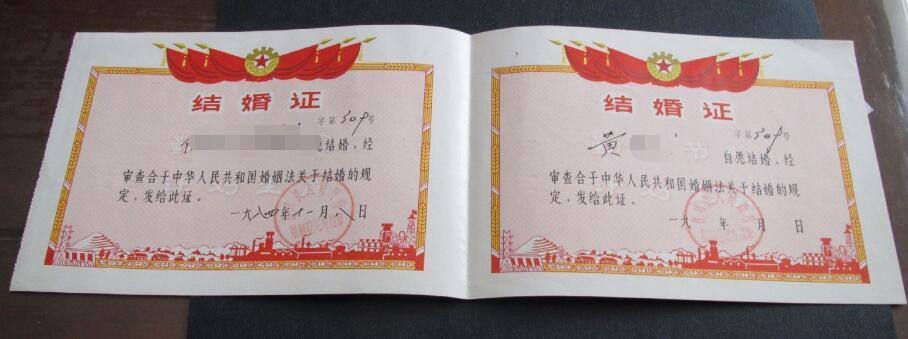 结婚证
字第509号
结婚，经
审查合于中华人民共和国婚姻法关于结婚的规
定，发给此证。
一九八四年十一月八日
结婚证
字第509号
黄
自愿结婚，经
审查合于中华人民共和国婚姻法关于结婚的规
定，发给此证。
一九 年 月 日